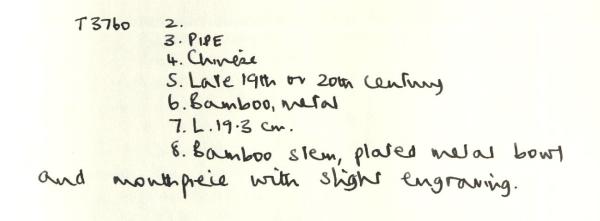 T3760 2.
3. PIPE
4. Chinese
5. Late 19th or 20th century
6. Bamboo, metal
7. L. 19.3 cm.
8. Bamboo stem, plated metal bowl
and mouthpeice with slight engraving.